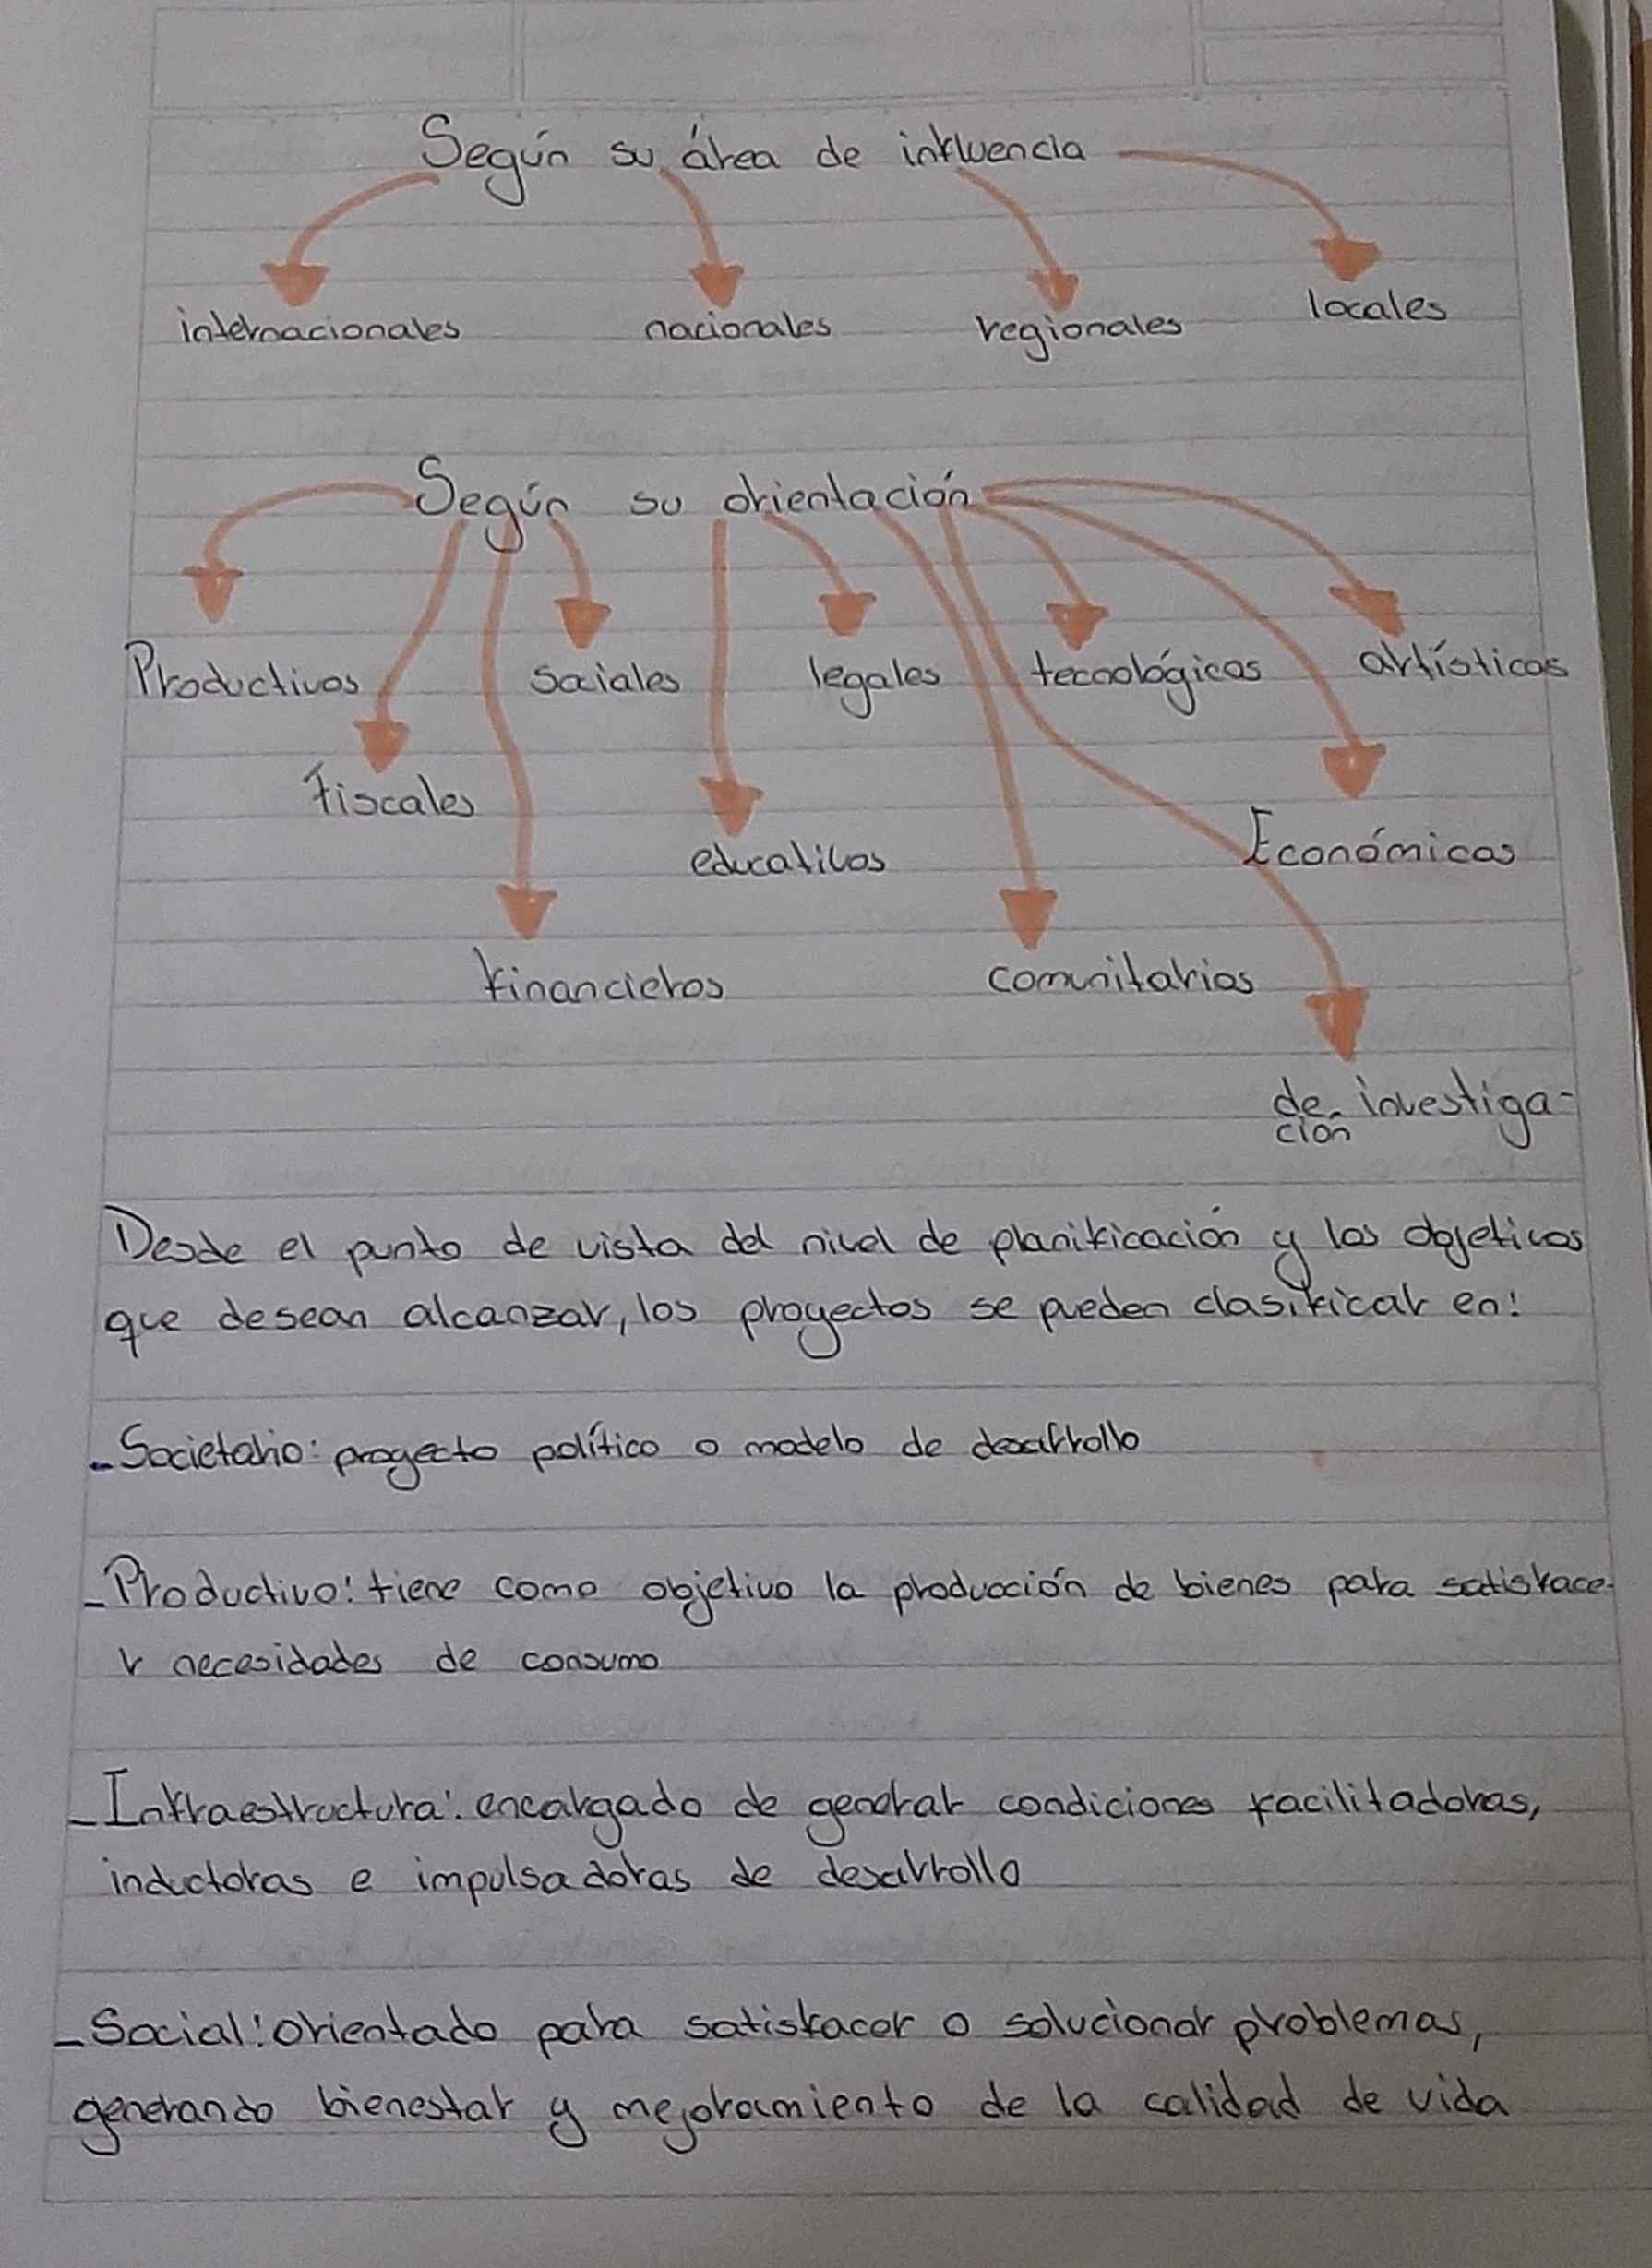 Según su área de influencia
internacionales nacionales regionales locales
Según su orientación
Productivos sociales legales tecnológicos artísticos
Fiscales educativos Económicos
financieros comunitarios
de investiga-
ción
Desde el punto de vista del nivel de planificación y los objetivos
que desean alcanzar, los proyectos se pueden clasificar en:
- Societario: proyecto político o modelo de desarrollo
- Productivo: tiene como objetivo la producción de bienes para satisface-
r necesidades de consumo
- Infraestructura: encargado de generar condiciones facilitadoras,
inductoras e impulsadoras de desarrollo
- Social: orientado para satisfacer o solucionar problemas,
generando bienestar y mejoramiento de la calidad de vida